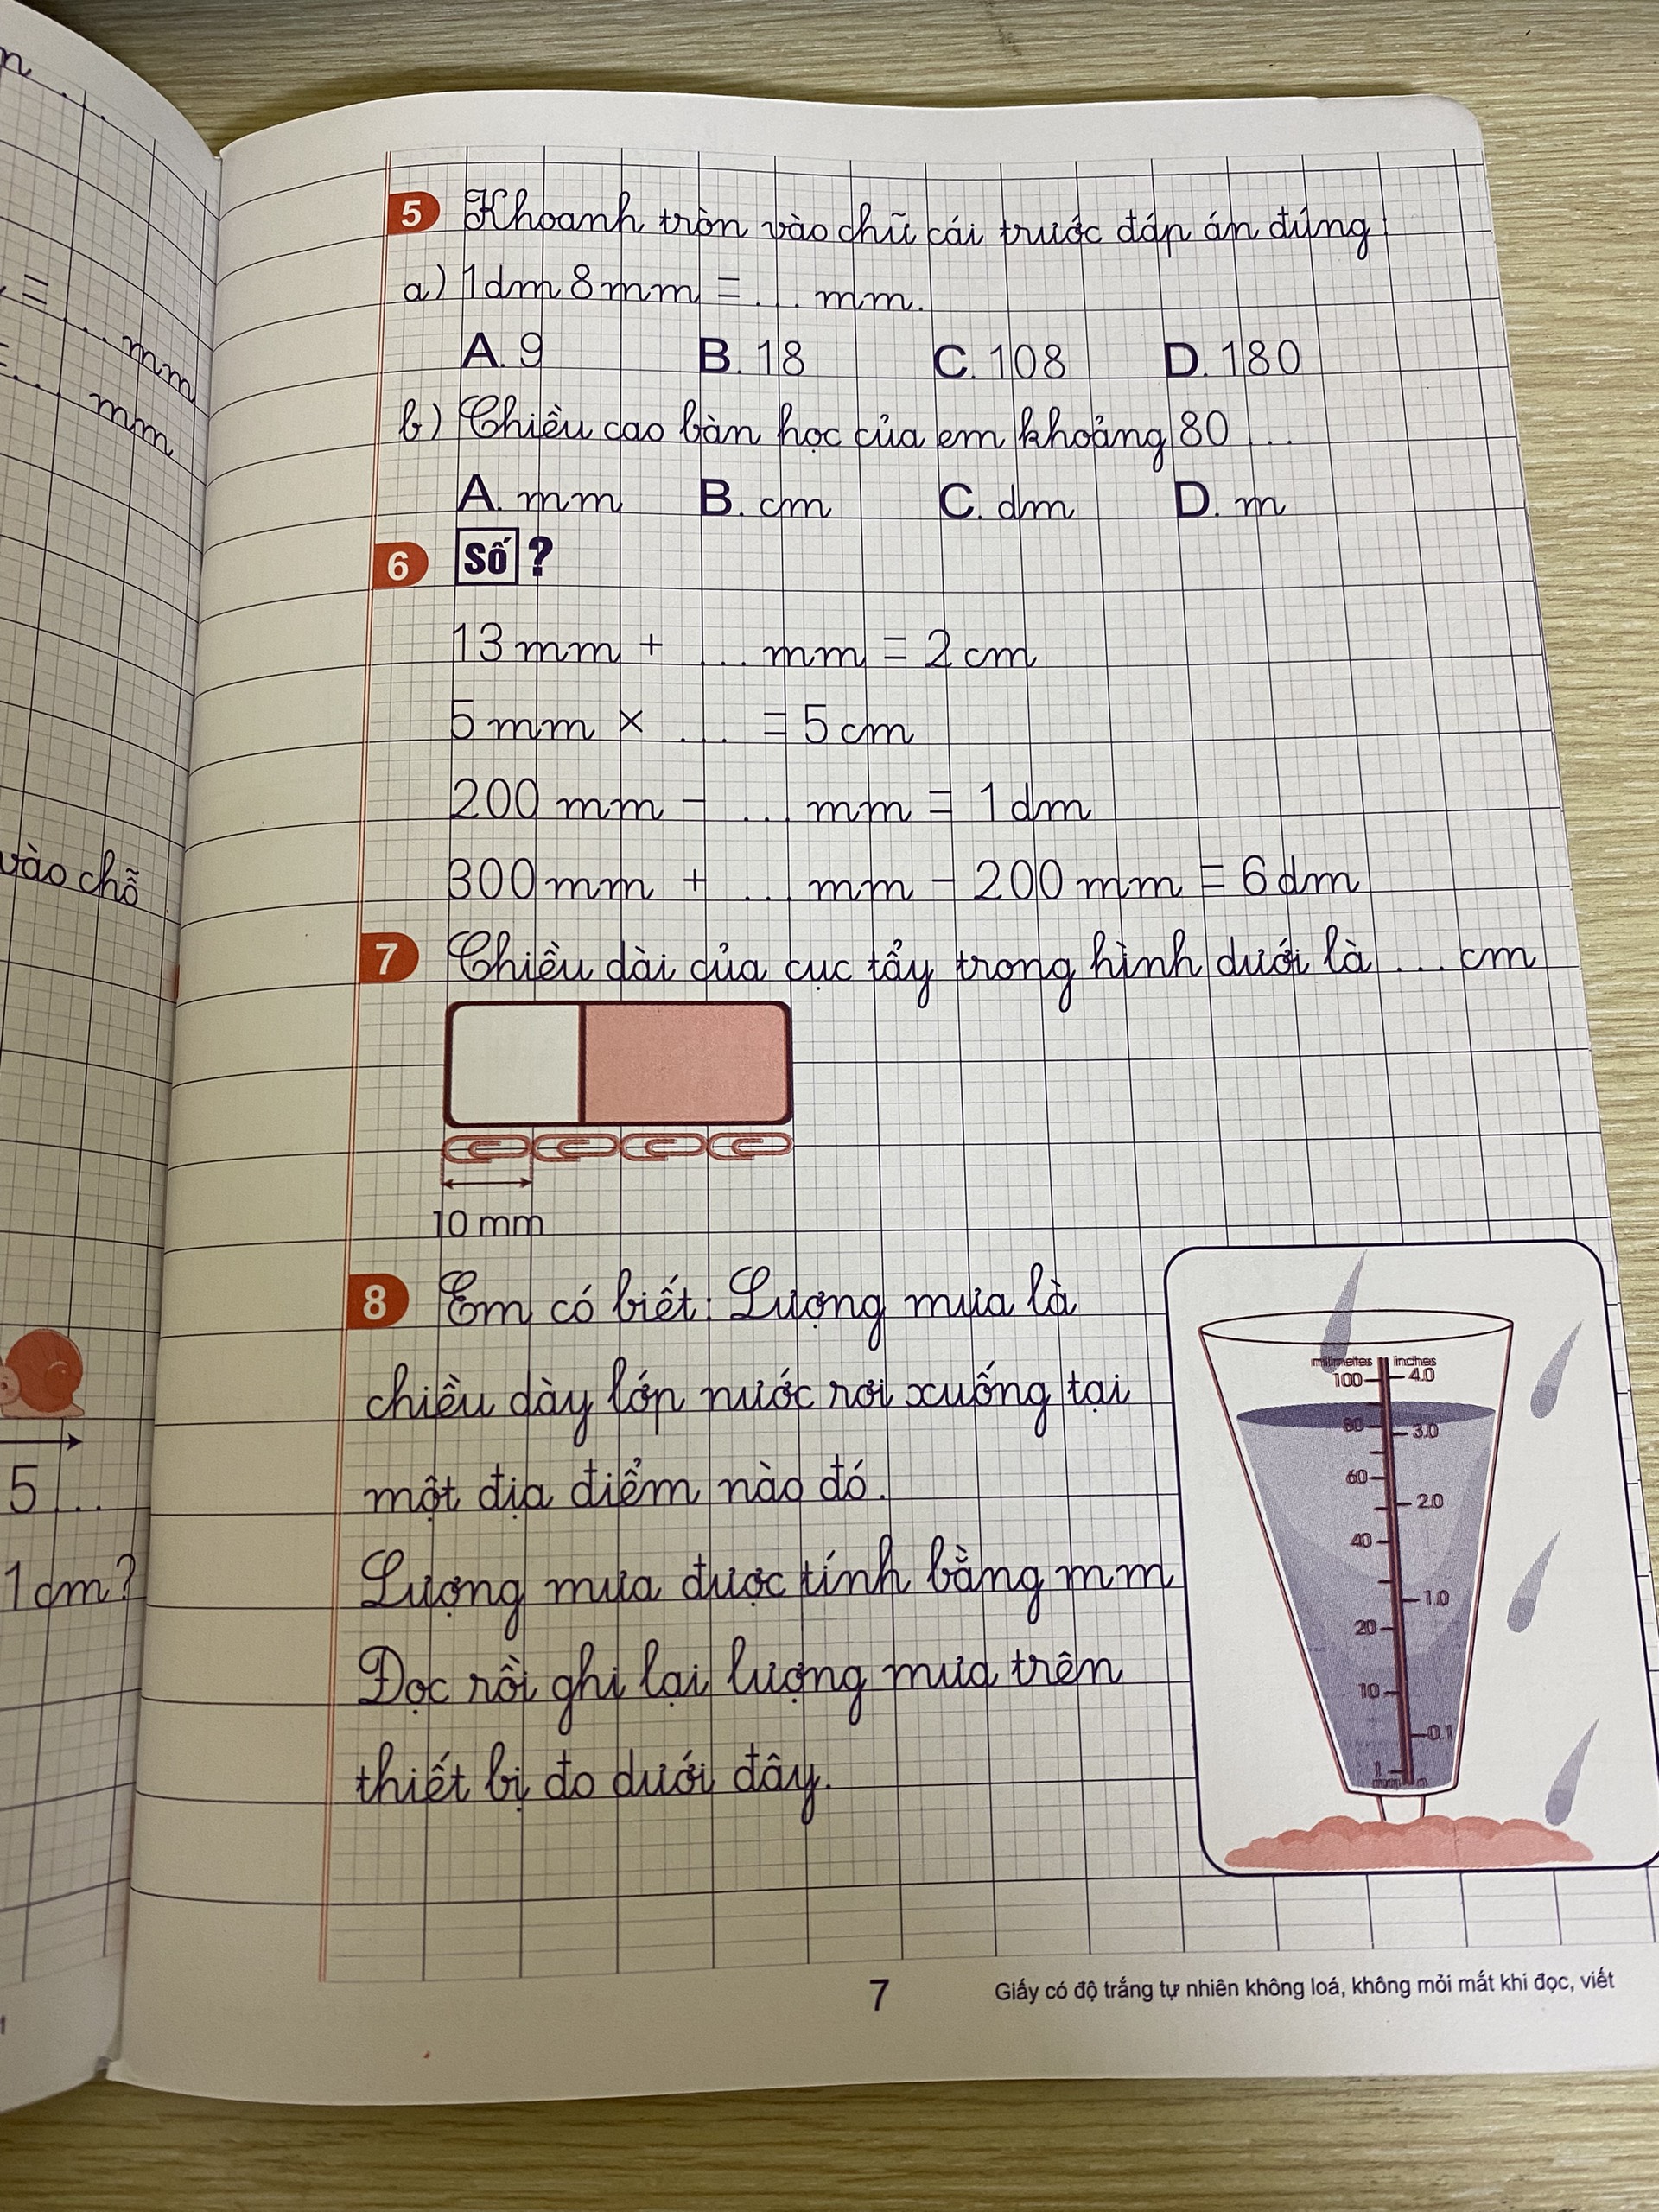 m
= ... mm
= ... mm
vào chỗ
5 ...
1 cm?
5 Khoanh tròn vào chữ cái trước đáp án đúng:
a) 1dm 8mm = ... mm.
A. 9 B. 18 C. 108 D. 180
b) Chiều cao bàn học của em khoảng 80 ...
A. mm B. cm C. dm D. m
6 Số ?
13 mm + ... mm = 2 cm
5 mm × ... = 5 cm
200 mm - ... mm = 1 dm
300 mm + ... mm - 200 mm = 6 dm
7 Chiều dài của cục tẩy trong hình dưới là ... cm
10 mm
8 Em có biết: Lượng mưa là
chiều dày lớp nước rơi xuống tại
một địa điểm nào đó.
Lượng mưa được tính bằng mm
Đọc rồi ghi lại lượng mưa trên
thiết bị đo dưới đây.
inches
100 4.0
80 3.0
60
2.0
40
1.0
20
10
0.1
1
7
Giấy có độ trắng tự nhiên không loá, không mỏi mắt khi đọc, viết